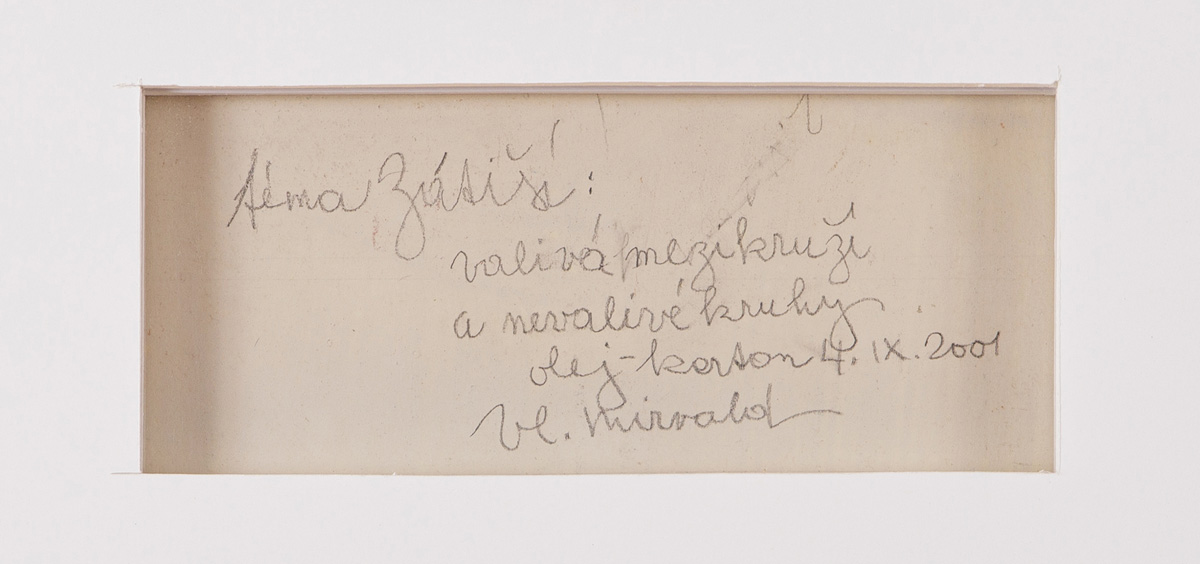 téma Zátiší:
valivá mezikruží
a nevalivé kruhy
olej-karton 4. IX. 2001
Vl. Mirvald